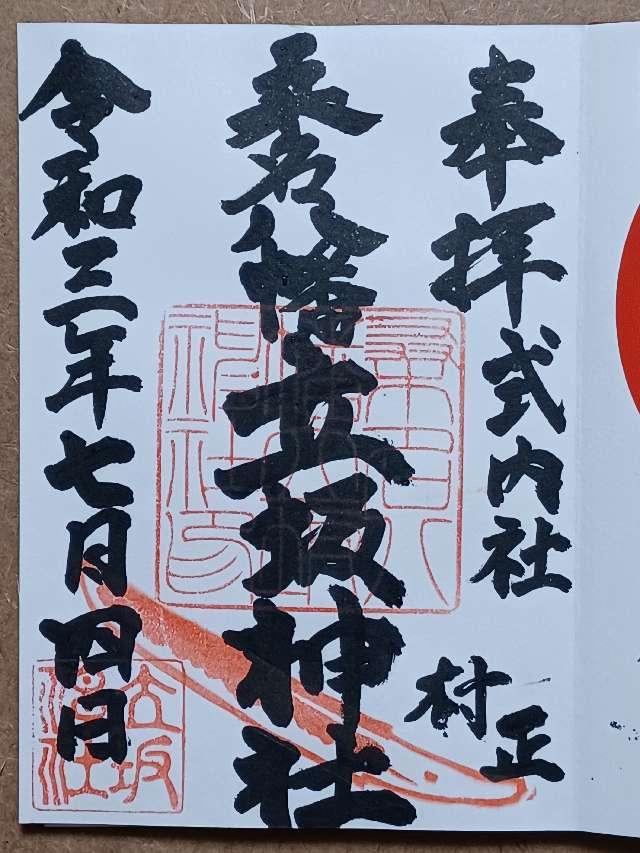 奉拝式内社
村正
桑名八幡立坂神社
令和三年七月四日
立坂神社